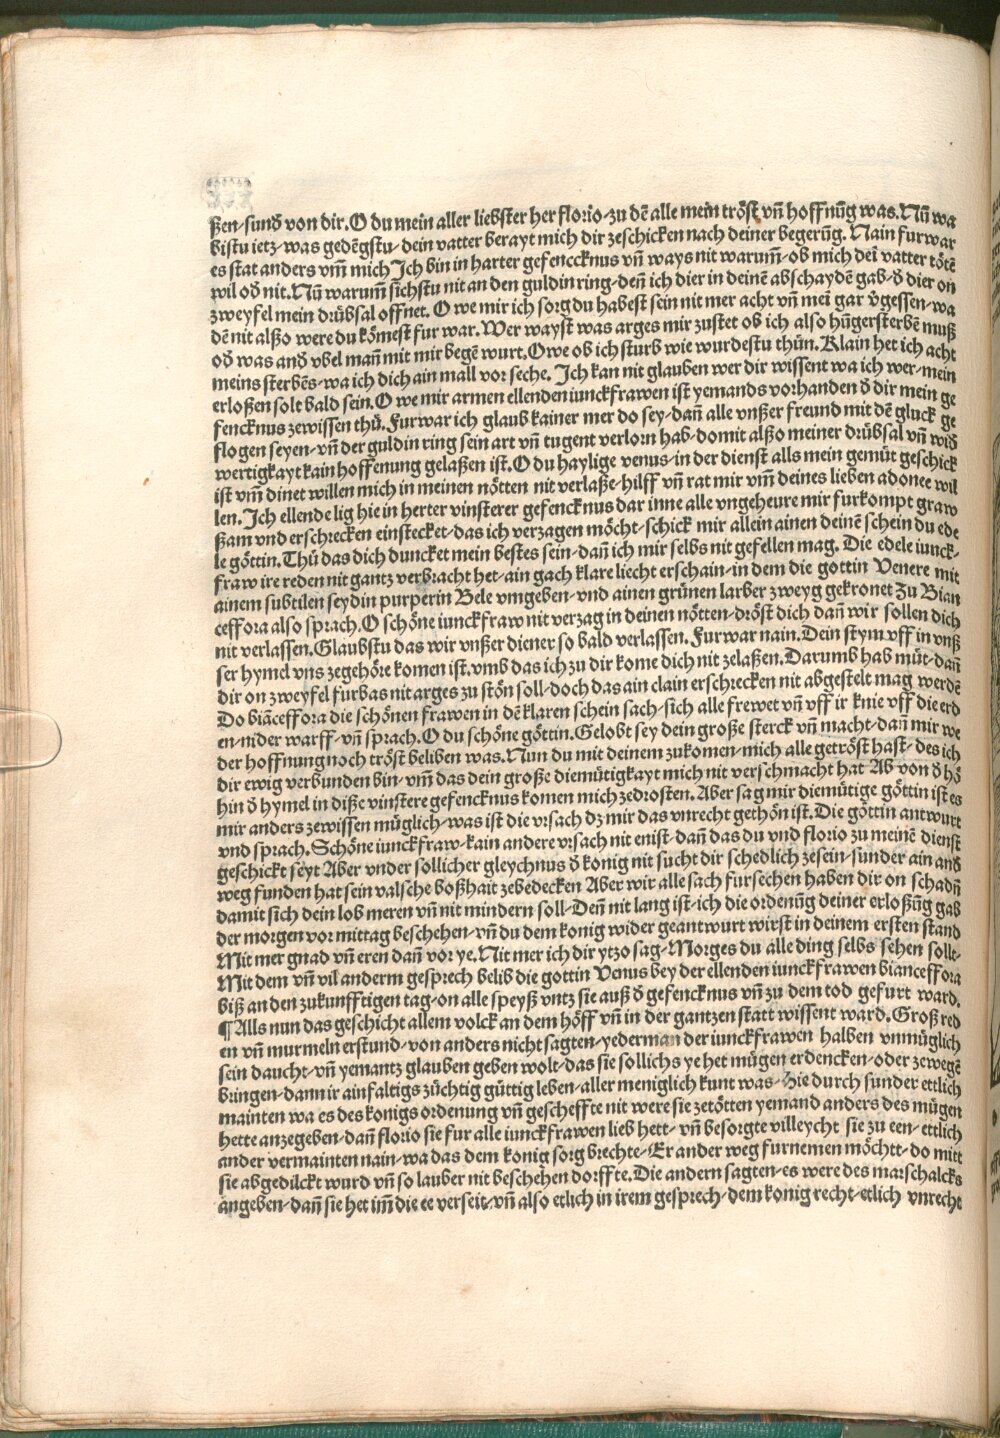 ßen·sund̄ von dir. O du mein aller liebster her florio·zu dē alle mein tröst vn̄ hoffnūg was. Nū wa
bistu ietz·was gedēgstu·dein vatter berayt mich dir zeschicken nach deiner begerūg. Nain furwar
es stat anders vm̄ mich Ich bin in harter gefenccknus vn̄ ways nit warum̄·ob mich dei vatter tötē
wil od̄ nit. Nū warum̄ sichstu nit an den guldin ring·den̄ ich dier in deinē abschaydē gab·d̄ dier on
zweyfel mein drübsal offnet. O we mir ich sorg du habest sein nit mer acht vn̄ mei gar v̄gessen·wa
dē nit alßo were du kömest fur war. Wer wayst was arges mir zustet ob ich also hūgersterbē muß
od̄ was and̄ vbel man̄ mit mir begē wurt. Owe ob ich sturb wie wurdestu thün. Klain het ich acht
meins sterbēs·wa ich dich ain mall vor seche. Ich kan nit glauben wer dir wissent wa ich wer·mein
erloßen solt bald sein. O we mir armen ellenden iunckfrawen ist yemands vorhanden d̄ dir mein ge
fencknus zewissen thü. Furwar ich glaub kainer mer do sey·dan̄ alle vnßer freund mit dē gluck ge
flogen seyen·vn̄ der guldin ring sein art vn̄ tugent verlorn hab·domit alßo meiner drübsal vn̄ wid̄
wertigkayt kain hoffenung gelaßen ist. O du haylige venus·in der dienst alls mein gemüt geschick
ist vm̄ dinet willen mich in meinen nötten nit verlaße·hilff vn̄ rat mir vm̄ deines lieben adonee wil
len. Ich ellende lig hie in herter vinsterer gefencknus dar inne alle vngeheure mir furkompt graw
ßam vnd erschrecken einstecket·das ich verzagen möcht·schick mir allein ainen deinē schein du ede
le göttin. Thü das dich duncket mein bestes sein·dan̄ ich mir selbs nit gefellen mag. Die edele iunck·
fraw ire reden nit gantz verbracht het·ain gach klare liecht erschain·in dem die gottin Venere mit
ainem subtilen seydin purperin Bele vmgeben·vnd ainen grünen larber zweyg gekronet Zu Bian
ceffora also sprach. O schöne iunckfraw nit verzag in deinen nötten·dröst dich dan̄ wir sollen dich
nit verlassen. Glaubstu das wir vnßer diener so bald verlassen. Furwar nain. Dein stym vff in vnß
ser hymel vns zegehöre komen ist·vmb das ich zu dir kome dich nit zelaßen. Darumb hab müt·dan̄
dir on zweyfel furbas nit arges zu stön soll·doch das ain clain erschrecken nit abgestelt mag werdē
Do biāceffora die schönen frawen in dē klaren schein sach·sich alle frewet vn̄ vff ir knie vff die erd
en·nider warff·vn̄ sprach. O du schöne göttin. Gelobt sey dein große sterck vn̄ macht·dan̄ mir we
der hoffnung noch tröst beliben was. Nun du mit deinem zukomen·mich alle getröst hast·des ich
dir ewig verbunden bin·vm̄ das dein große diemütigkayt mich nit verschmacht hat Ab von d̄ hö
hin d̄ hymel in diße vinstere gefencknus komen mich zedrosten. Aber sag mir diemütige göttin ist es
mir anders zewissen müglich·was ist die vrsach dz mir das vnrecht gethön ist. Die göttin antwurt
vnd sprach. Schöne iunckfraw·kain andere vrsach nit enist·dan̄ das du vnd florio zu meinē dienst
geschickt seyt Aber vnder sollicher gleychnus d̄ konig nit sucht dir schedlich zesein·sunder ain and̄
weg funden hat sein valsche boßhait zebedecken Aber wir alle sach fursechen haben dir on schadn̄
damit sich dein lob meren vn̄ nit mindern soll·Den̄ nit lang ist·ich die ordenūg deiner erloßūg gab
der morgen vor mittag beschehen·vn̄ du dem konig wider geantwurt wirst in deinem ersten stand
Mit mer gnad vn̄ eren dan̄ vor ye. Nit mer ich dir ytzo sag·Morges du alle ding selbs sehen sollt·
Mit dem vn̄ vil anderm gesprech belib die gottin Venus bey der ellenden iunckfrawen bianceffora
biß an den zukunfftigen tag·on alle speyß vntz sie auß d̄ gefencknus vn̄ zu dem tod gefurt ward.
¶ Alls nun das geschicht allem volck an dem höff vn̄ in der gantzen statt wissent ward. Groß red
en vn̄ murmeln erstund·von anders nicht sagten·yederman der iunckfrawen halben vnmüglich
sein daucht·vn̄ yemantz glauben geben wolt·das sie sollichs ye het mügen erdencken·oder zewegē
bringen·dann ir ainfaltigs züchtig güttig leben·aller meniglich kunt was·Hie durch sunder ettlich
mainten wa es des konigs ordenung vn̄ gescheffte nit were sie zetötten yemand anders des mügen
hette anzegeben·dan̄ florio sie fur alle iunckfrawen lieb hett·vn̄ besorgte villeycht sie zu een·ettlich
ander vermainten nain·wa das dem konig sorg brechte·Er ander weg furnemen möchtt·do mitt
sie abgedilckt wurd vn̄ so lauber nit beschehen dorffte. Die andern sagten·es were des marschalcks
angeben·dan̄ sie het im̄ die ee verseit·vn̄ also etlich in irem gesprech·dem konig recht·etlich vnrecht